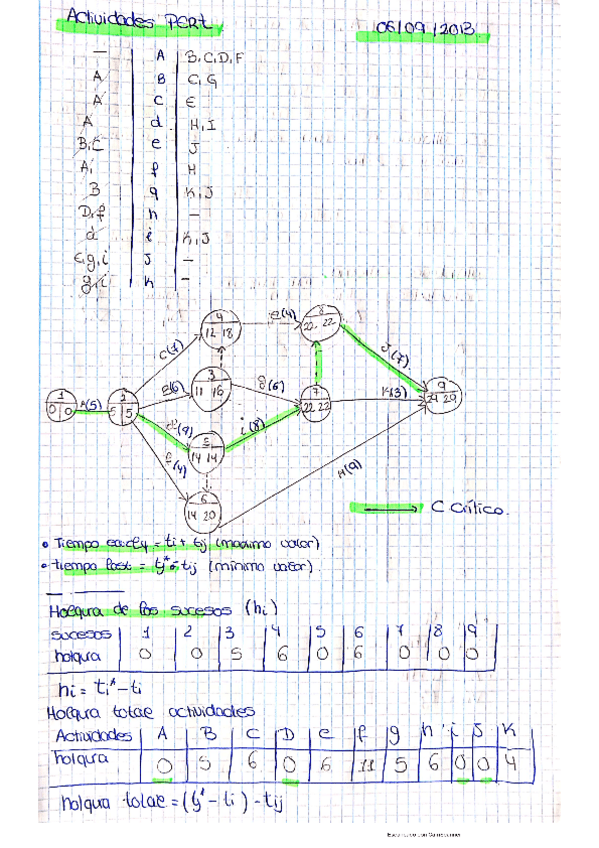 Actividades PERT 06/09/2013
— A B,C,D,F
A B C,G
A C E
A d H,I
B,C e J
A, f H
B g K,J
D,f h —
d i K,J
e,g,i J —
g,i K —
4
12 18
e(4)
8
22 22
C(7)
J(7)
1
0 0
A(5)
2
5 5
B(6)
3
11 16
g(6)
7
22 22
K(3)
9
29 29
d(9)
i(8)
5
14 14
f(4)
6
14 20
H(9)
C Crítico.
• Tiempo early = ti + tij (maximo valor)
• Tiempo last = tj* - tij (mínimo valor).
Holgura de los sucesos (hi)
sucesos 1 2 3 4 5 6 7 8 9
holgura 0 0 5 6 0 6 0 0 0
hi = ti* - ti
Holgura total actividades
Actividades A B C D e f g h i J K
holgura 0 5 6 0 6 11 5 6 0 0 4
holgura total = (tj* - ti) - tij
Escaneado con CamScanner